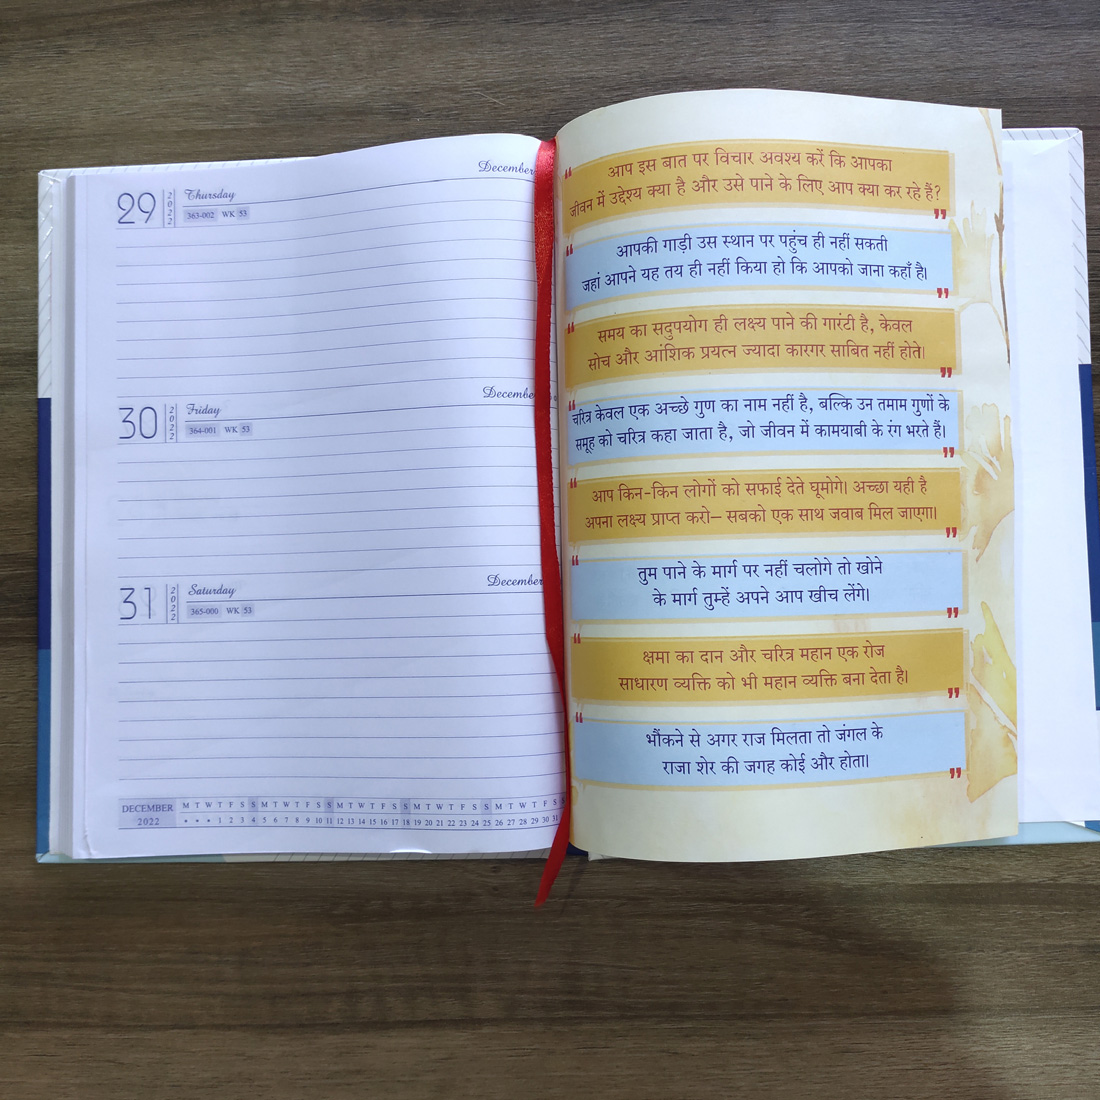 December
29
2022
Thursday
363-002 WK 53
December
30
2022
Friday
364-001 WK 53
December
31
2022
Saturday
365-000 WK 53
DECEMBER M T W T F S S M T W T F S S M T W T F S S M T W T F S S M T W T F S
2022 * * * 1 2 3 4 5 6 7 8 9 10 11 12 13 14 15 16 17 18 19 20 21 22 23 24 25 26 27 28 29 30 31
“
आप इस बात पर विचार अवश्य करें कि आपका
जीवन में उद्देश्य क्या है और उसे पाने के लिए आप क्या कर रहे हैं?
”
“
आपकी गाड़ी उस स्थान पर पहुंच ही नहीं सकती
जहां आपने यह तय ही नहीं किया हो कि आपको जाना कहाँ है।
”
“
समय का सदुपयोग ही लक्ष्य पाने की गारंटी है, केवल
सोच और आंशिक प्रयत्न ज्यादा कारगर साबित नहीं होते।
”
“
चरित्र केवल एक अच्छे गुण का नाम नहीं है, बल्कि उन तमाम गुणों के
समूह को चरित्र कहा जाता है, जो जीवन में कामयाबी के रंग भरते हैं।
”
“
आप किन-किन लोगों को सफाई देते घूमोगे। अच्छा यही है
अपना लक्ष्य प्राप्त करो– सबको एक साथ जवाब मिल जाएगा।
”
“
तुम पाने के मार्ग पर नहीं चलोगे तो खोने
के मार्ग तुम्हें अपने आप खीच लेंगे।
”
“
क्षमा का दान और चरित्र महान एक रोज
साधारण व्यक्ति को भी महान व्यक्ति बना देता है।
”
“
भौंकने से अगर राज मिलता तो जंगल के
राजा शेर की जगह कोई और होता।
”